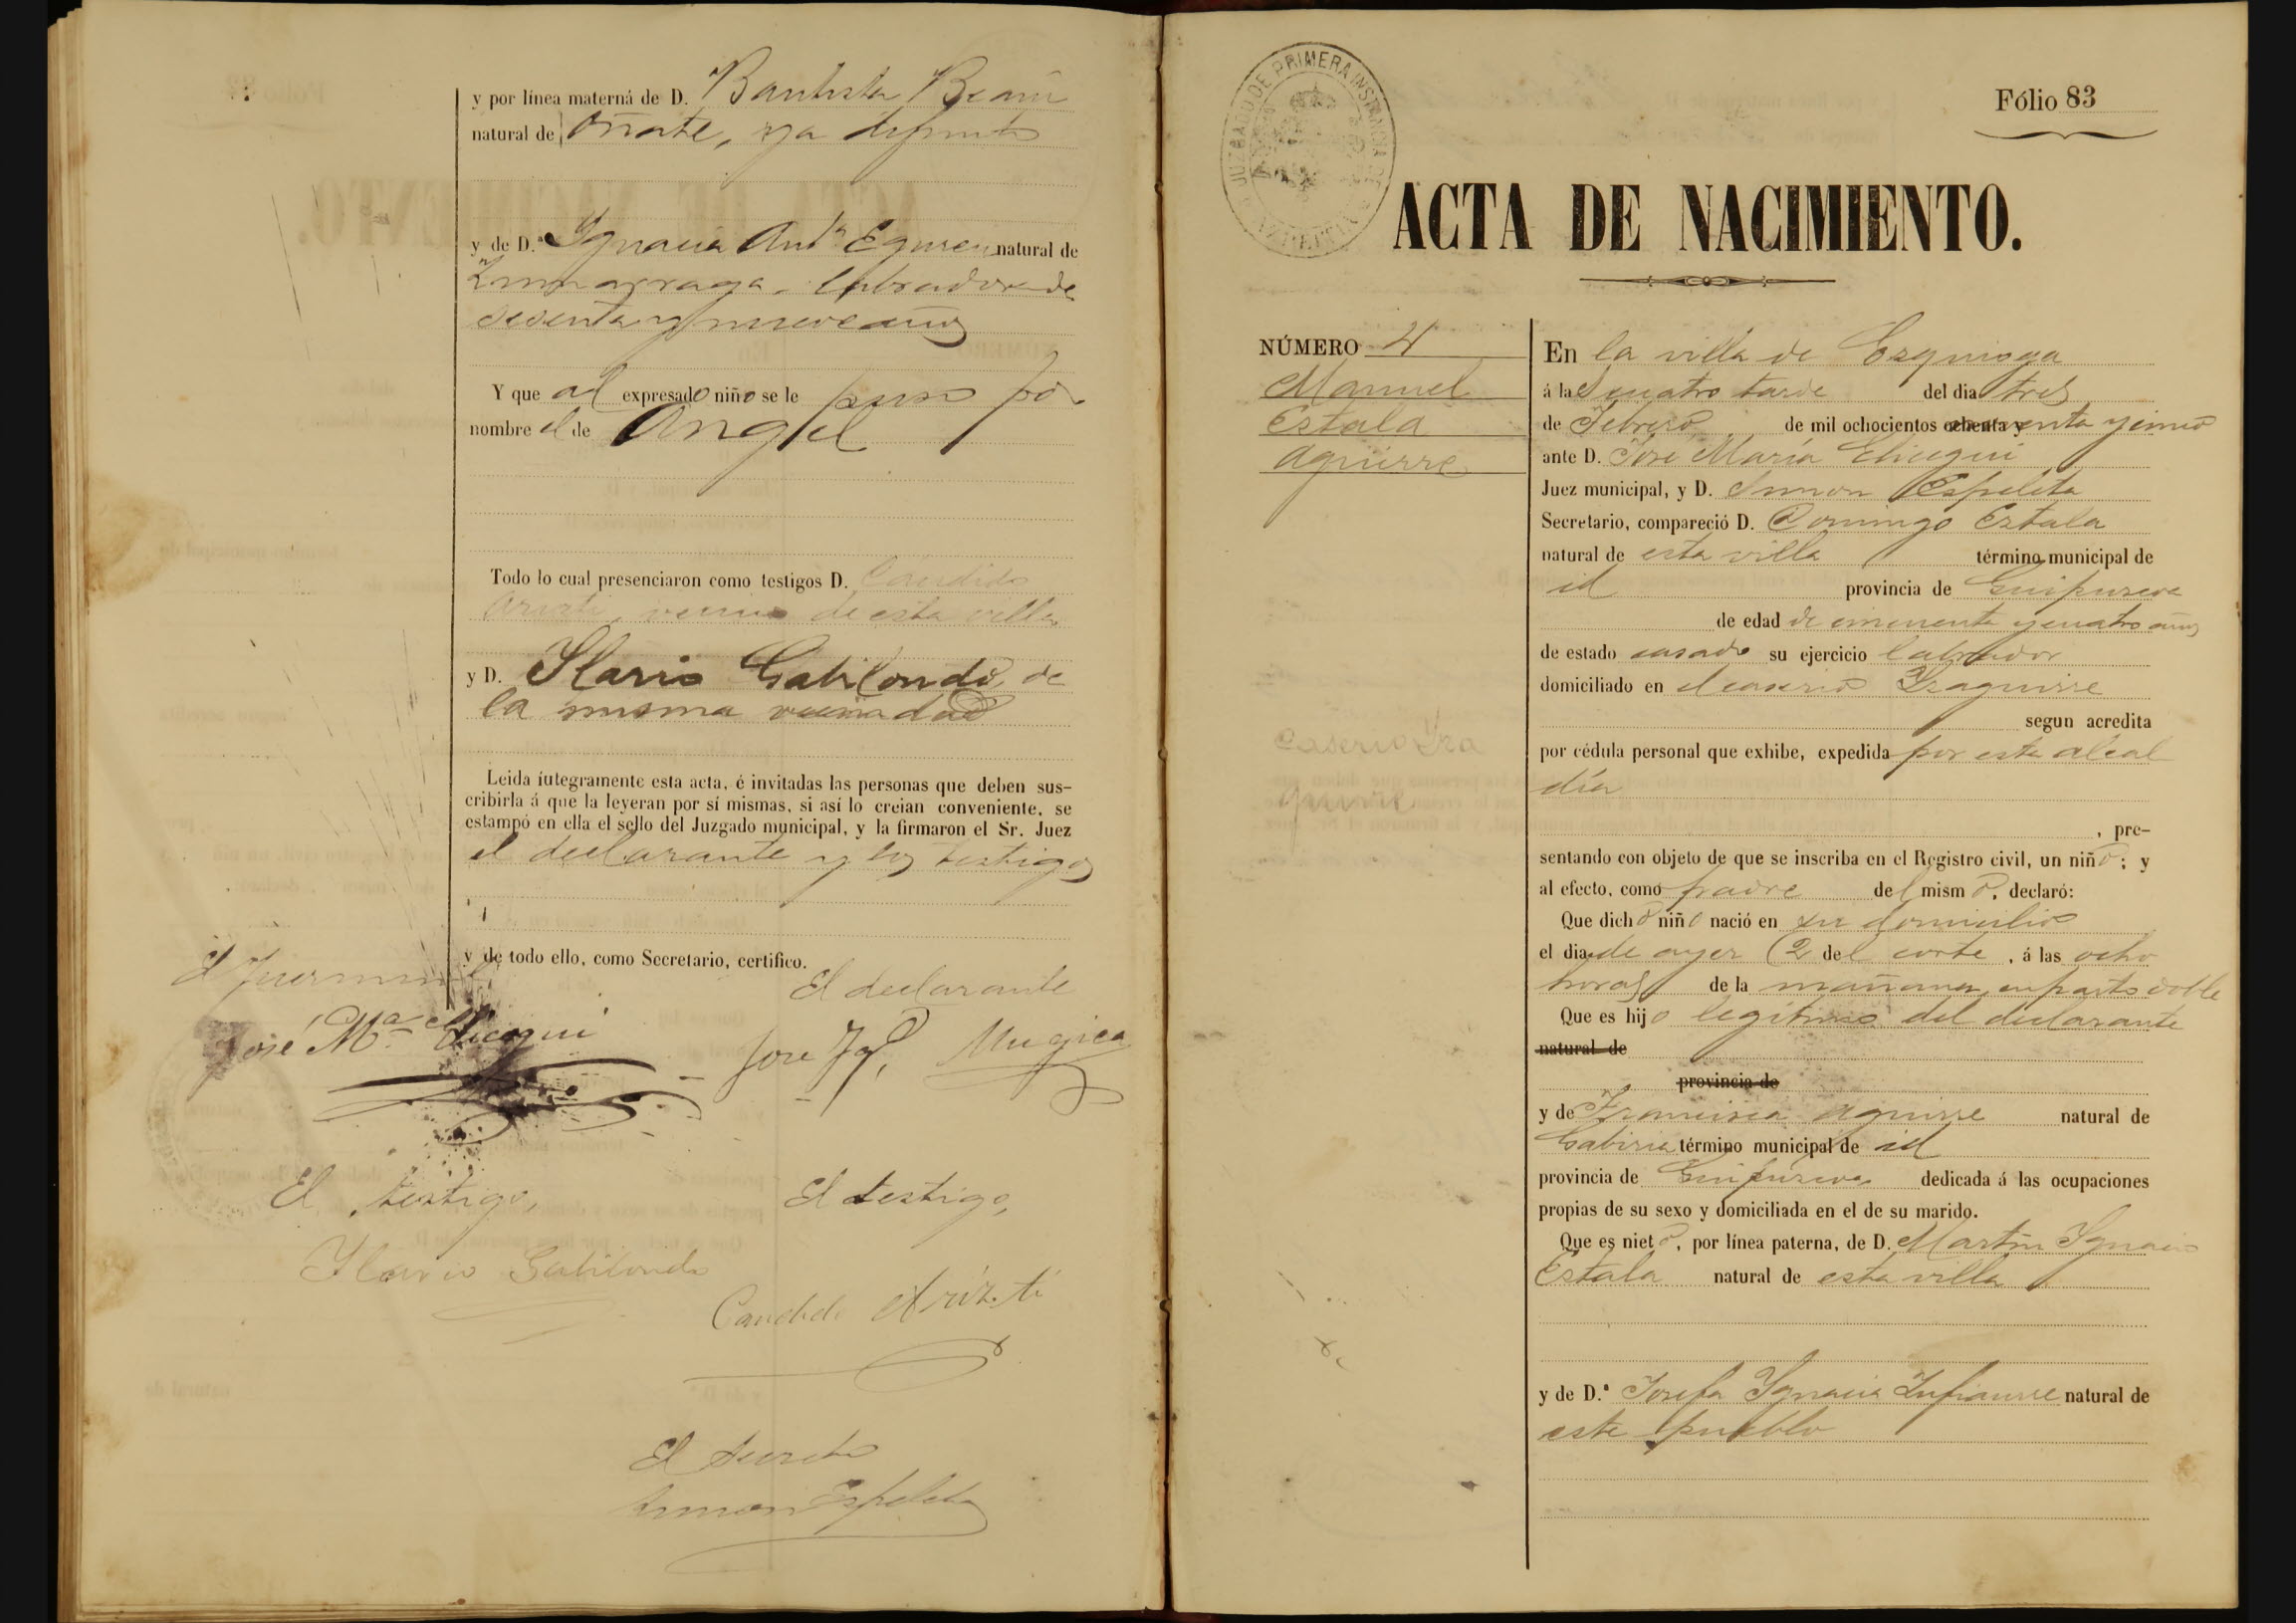 y por línea materna de D. Bautista
natural de Oñate, ya difunto
y de D.ª Ignacia Ant.ª Eguren natural de
Zumarraga, labradora de
sesenta y nueve años
Y que al expresado niño se le puso por
nombre el de Angel
Todo lo cual presenciaron como testigos D. Candido
Arizti, vecino de esta villa
y D. Ilario Gabilondo, de
la misma vecindad
Leida íntegramente esta acta, é invitadas las personas que deben sus-
cribirla á que la leyeran por sí mismas, si así lo creian conveniente, se
estampó en ella el sello del Juzgado municipal, y la firmaron el Sr. Juez
el declarante y los testigos
y de todo ello, como Secretario, certifico.
El Juez
El declarante
José M.ª Elicegui
Jose Ig.º Mugica
El testigo,
El testigo,
Ilario Gabilondo
Candido Arizti
El Secreto
Simon Espeleta
JUZGADO DE PRIMERA INSTANCIA DE
Fólio 83
ACTA DE NACIMIENTO.
NÚMERO 4
Manuel
Estala
Aguirre
Caserio Yza
guirre
En la villa de Ezquioga
á las cuatro tarde del dia tres
de Febrero de mil ochocientos ochenta y noventa y cinco
ante D. José María Elicegui
Juez municipal, y D. Simon Espeleta
Secretario, compareció D. Domingo Estala
natural de esta villa término municipal de
id provincia de Guipuzcoa
de edad de cincuenta y cuatro años
de estado casado su ejercicio labrador
domiciliado en el caserio Yzaguirre
segun acredita
por cédula personal que exhibe, expedida por esta alcal
día
, pre-
sentando con objeto de que se inscriba en el Registro civil, un niño; y
al efecto, como padre del mismo, declaró:
Que dicho niño nació en su domicilio
el dia de ayer (2 del corte, á las ocho
horas de la mañana, en parto doble
Que es hijo legítimo del declarante
natural de
provincia de
y de Francisca Aguirre natural de
Gabiria término municipal de id
provincia de Guipúzcoa dedicada á las ocupaciones
propias de su sexo y domiciliada en el de su marido.
Que es nieto, por línea paterna, de D. Martin Ignacio
Estala natural de esta villa
y de D.ª Josefa Ignacia Zufiaurre natural de
este pueblo